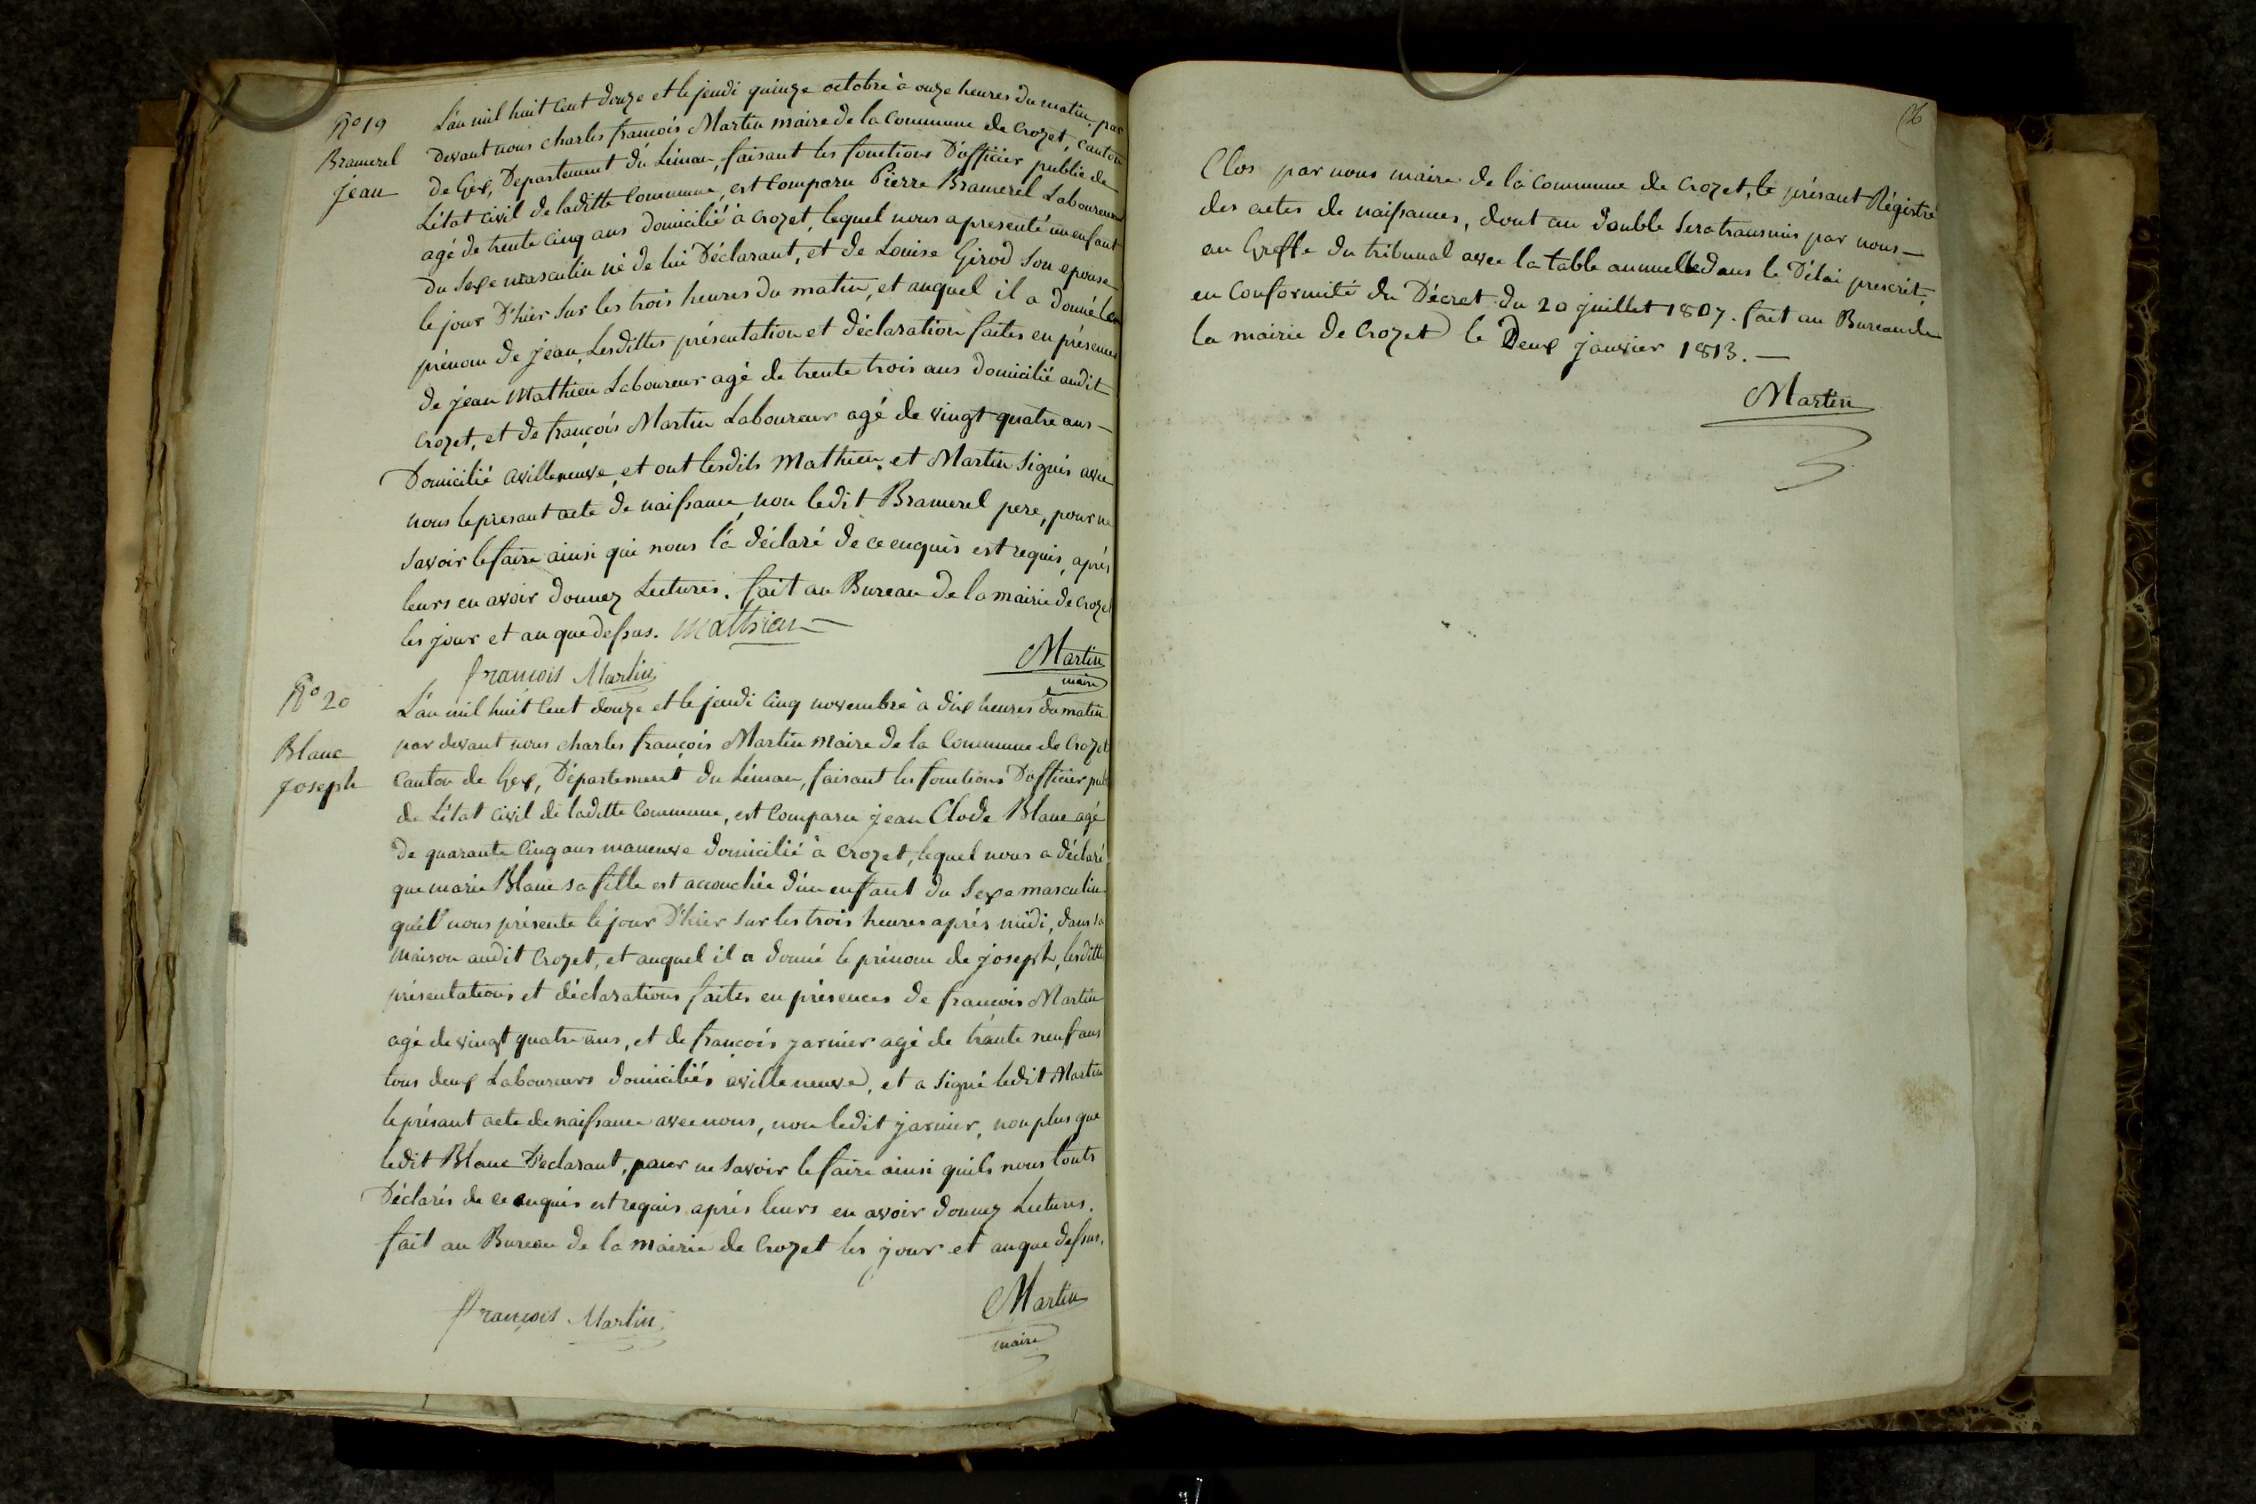 No 19
Bramerel
jean
L'an mil huit cent douze et le jeudi quinze octobre à onze heures du matin, par
devant nous charles françois Martin maire de la Commune de Crozet, canton
de Gex, Departement du Léman, faisant les fonctions D'officier public de
L'état civil de laditte Commune, est Comparu Pierre Bramerel Laboureur
agé de trente cinq ans domicilié à Crozet, lequel nous a presenté un enfant
du Sexe masculin né de lui Déclarant, et de Louise Girod son epouse
le jour D'hier sur les trois heures du matin, et auquel il a donné le
prénom de jean, Lesdittes présentation et déclaration faites en présences
de jean Mathieu Laboureur agé de trente trois ans domicilié audit
Crozet, et de françois Martin Laboureur agé de vingt quatre ans —
Domicilié avilleneuve, et ont lesdits Mathieu et Martin signés avec
nous le presant acte de naissance, non ledit Bramerel pere, pour ne
savoir le faire ainsi qui nous l'a déclaré de ce enquis est requis, aprés
leurs en avoir donnez Lectures. fait au Bureau de la mairie de Crozet
les jour et an que dessus. Mathieu
Martin
maire
françois Martin
No 20
Blanc
joseph
L'an mil huit Cent douze et le jeudi Cinq novembre à dix heures du matin
par devant nous charles françois Martin Maire de la Commune de Crozet
Canton de Gex, Département du Léman, faisant les fonctions D'officier pub
de L'état civil de laditte Commune, est Comparu jean Clode Blanc agé
de quarante Cinq ans maneuve domicilié à Crozet, lequel nous a déclaré
que marie Blanc sa fille est accouchée d'un enfant du Sexe masculin
qu'il nous présente le jour D'hier sur les trois heures aprés midi, dans sa
maison audit Crozet, et auquel il a donné le prénom de joseph, lesditte
présentations et déclarations faites en présences de françois Martin
agé de vingt quatre ans, et de françois jarnier agé de trante neuf ans
tous deux Laboureurs domiciliés avilleneuve, et a signé ledit Martin
le présant acte de naissance avec nous, non ledit jarnier, non plus que
ledit Blanc Déclarant, pour ne savoir le faire ainsi quils nous l'onts
Déclarés de ce enquis est requis aprés leurs en avoir donnez Lectures.
fait au Bureau de la mairie de Crozet les jour et an que dessus.
françois Martin
Martin
maire
Clos par nous maire de la Commune de Crozet, le présant Régistre
des actes de naissances, dont un double sera transmis par nous —
au Greffe du tribunal avec la table annuelle dans le Délai prescrit,
en Conformité du Décret du 20 juillet 1807. fait au Bureau de
la mairie de Crozet le Deux janvier 1813. —
Martin